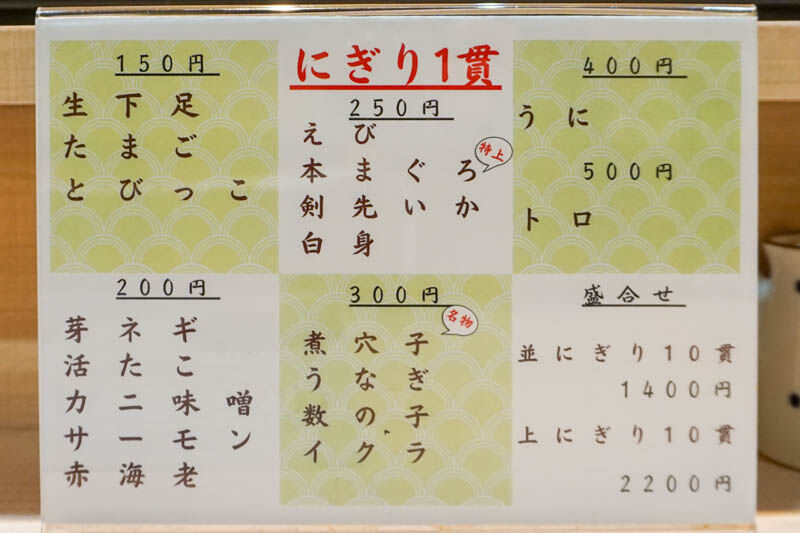 にぎり1貫
150円
生下足
たまご
とびっこ
200円
芽ネギ
活たこ
カニ味噌
サーモン
赤海老
250円
えび
本まぐろ
特上
剣先いか
白身
300円
名物
煮穴子
うなぎ
数の子
イクラ
400円
うに
500円
トロ
盛合せ
並にぎり10貫
1400円
上にぎり10貫
2200円